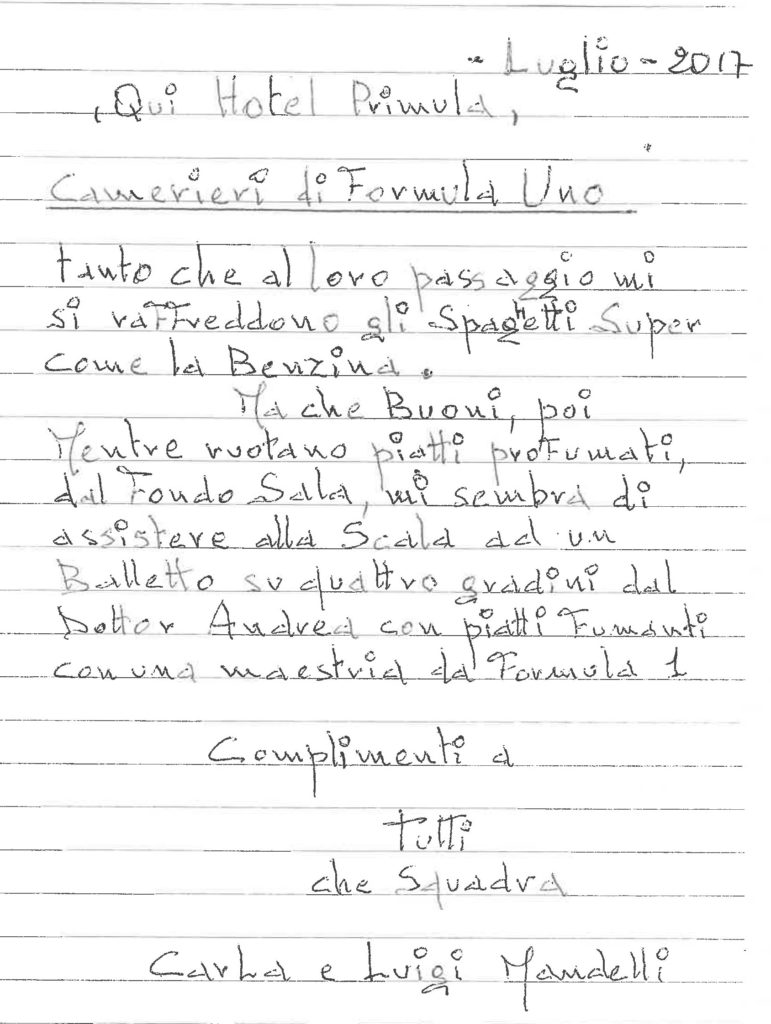 - Luglio - 2017
, Qui Hotel Primula,
Camerieri di Formula Uno
tanto che al loro passaggio mi
si raffreddono gli Spaghetti Super
come la Benzina.
Ma che Buoni, poi
Mentre ruotano piatti profumati,
dal Fondo Sala, mi sembra di
assistere alla Scala ad un
Balletto su quattro gradini dal
Dottor Andrea con piatti Fumanti
con una maestria da Formula 1
Complimenti a
Tutti
che Squadra
Carla e Luigi Mandelli